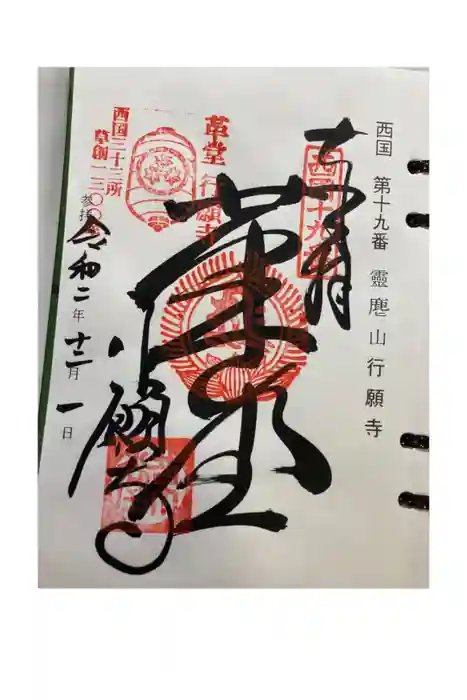 西国 第十九番 靈麀山行願寺
奉拝
西国十九番
革堂
革堂 行願寺
行願寺
西国三十三所
草創一三〇〇年
参拝
令和二年十二月一日